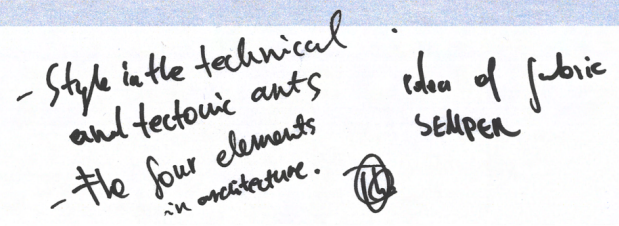 - Style in the technical
and tectonic arts
- The four elements
in architecture.
idea of fabric
SEMPER